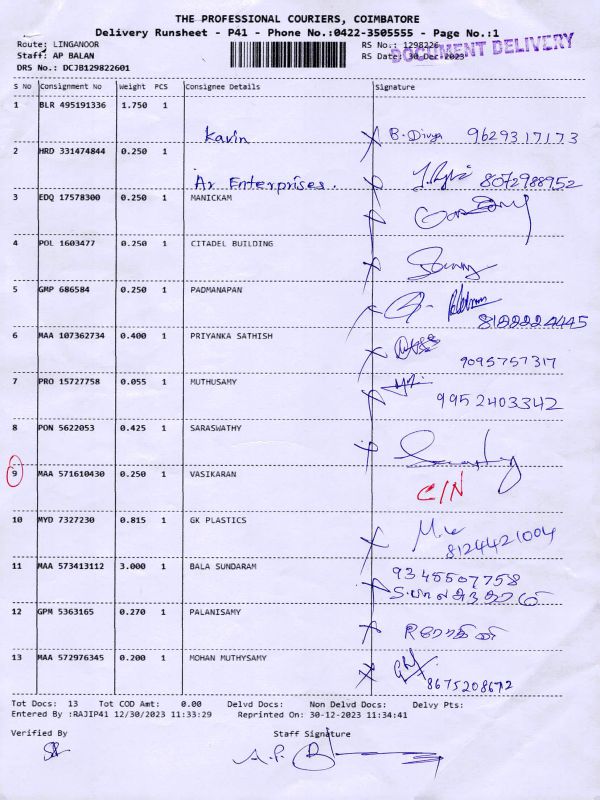 THE PROFESSIONAL COURIERS, COIMBATORE
Delivery Runsheet - P41 - Phone No.:0422-3505555 - Page No.:1
Route: LINGANOOR
RS No.: 1298226
DOCUMENT DELIVERY
Staff: AP BALAN
RS Date: 30-Dec-2023
DRS No.: DCJB129822601
S No Consignment No Weight PCS Consignee Details Signature
1 BLR 495191336 1.750 1
Kavin B. Divya 9629317173
2 HRD 331474844 0.250 1
Ar Enterprises. 8072988952
3 EDQ 17578300 0.250 1 MANICKAM
4 POL 1603477 0.250 1 CITADEL BUILDING
5 GMP 686584 0.250 1 PADMANAPAN
8122224445
6 MAA 107362734 0.400 1 PRIYANKA SATHISH
9095757317
7 PRO 15727758 0.055 1 MUTHUSAMY
9952403342
8 PON 5622053 0.425 1 SARASWATHY
9 MAA 571610430 0.250 1 VASIKARAN
C/N
10 MYD 7327230 0.815 1 GK PLASTICS
8124421004
11 MAA 573413112 3.000 1 BALA SUNDARAM
9345507758
12 GPM 5363165 0.270 1 PALANISAMY
13 MAA 572976345 0.200 1 MOHAN MUTHYSAMY
8675208672
Tot Docs: 13 Tot COD Amt: 0.00 Delvd Docs: Non Delvd Docs: Delvy Pts:
Entered By :RAJIP41 12/30/2023 11:33:29 Reprinted On: 30-12-2023 11:34:41
Verified By Staff Signature